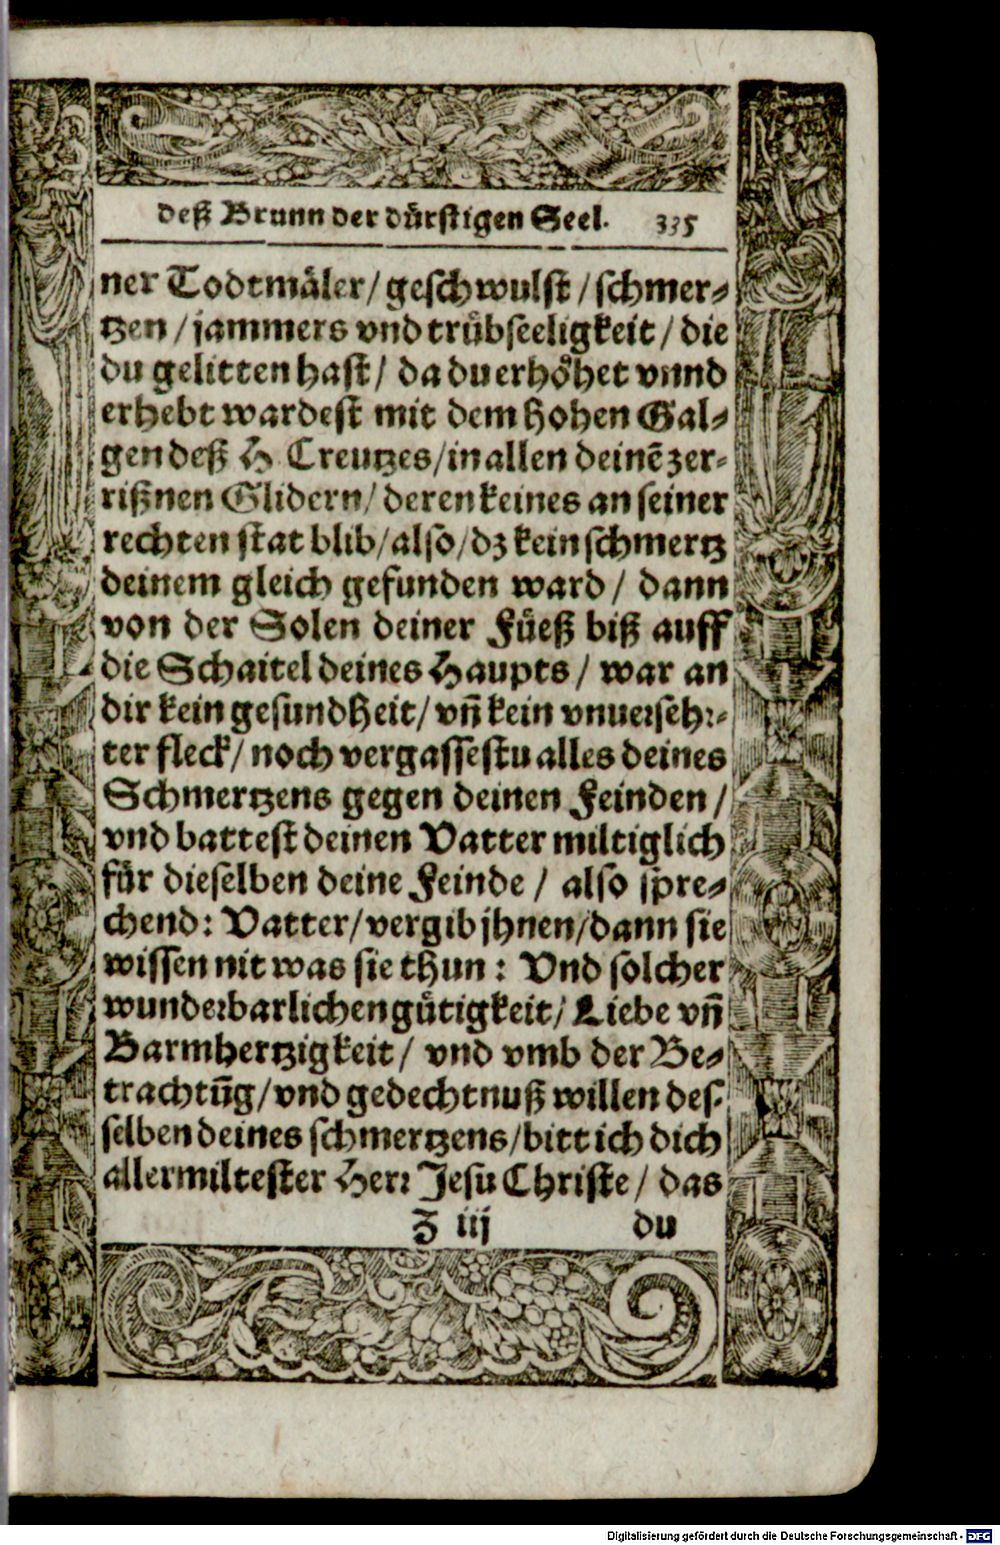 deß Brunn der dürstigen Seel. 335
ner Todtmäler/ geschwulst / schmer-
tzen / jammers vnd trübseeligkeit / die
du gelitten hast / da du erhöhet vnnd
erhebt wardest mit dem hohen Gal-
gen deß H Creutzes/in allen deinē zer-
rißnen Glidern/ deren keines an seiner
rechten stat blib/also/dz kein schmertz
deinem gleich gefunden ward / dann
von der Solen deiner Füeß biß auff
die Schaitel deines Haupts / war an
dir kein gesundheit/ vn̄ kein vnuerseh2-
ter fleck/ noch vergassestu alles deines
Schmertzens gegen deinen Feinden /
vnd battest deinen Vatter miltiglich
für dieselben deine Feinde / also spre-
chend: Vatter/vergib jhnen/dann sie
wissen nit was sie thun : Vnd solcher
wunderbarlichen gütigkeit/ Liebe vn̄
Barmhertzigkeit / vnd vmb der Be-
trachtūg/vnd gedechtnuß willen des-
selben deines schmertzens/bitt ich dich
allermiltester Herr Jesu Christe / das
Z iij du
Digitalisierung gefördert durch die Deutsche Forschungsgemeinschaft - DFG